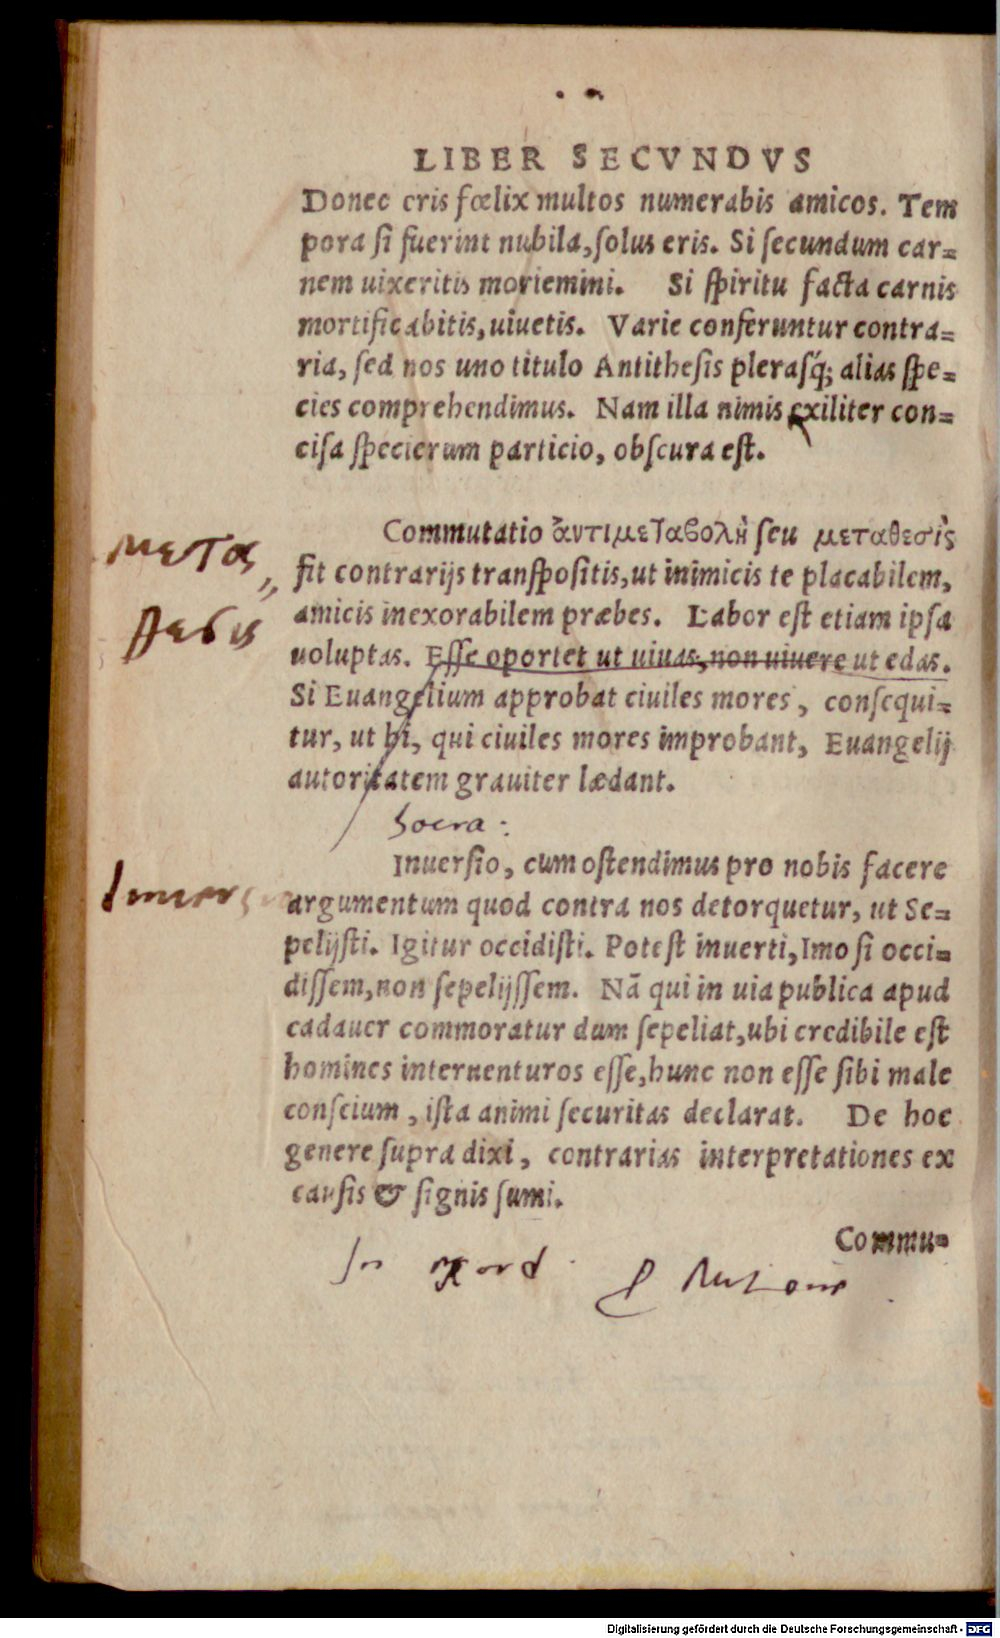 LIBER SECVNDVS
Donec eris fœlix multos numerabis amicos. Tem
pora ſi fuerint nubila, ſolus eris. Si ſecundum car-
nem uixeritis moriemini. Si ſpiritu facta carnis
mortificabitis, uiuetis. Varie conferuntur contra-
ria, ſed nos uno titulo Antitheſis pleraſq́; alias ſpe-
cies comprehendimus. Nam illa nimis exiliter con-
ciſa ſpecierum particio, obſcura eſt.
Commutatio ἀντιμεταβολὴ ſeu μεταθεσὶς
μετα
fit contrarijs tranſpoſitis, ut inimicis te placabilem,
amicis inexorabilem præbes. Labor eſt etiam ipſa
θεσις
uoluptas. Eſſe oportet ut uiuas, non uiuere ut edas.
Si Euangelium approbat ciuiles mores, conſequi-
tur, ut hi, qui ciuiles mores improbant, Euangelij
autoritatem grauiter lædant.
Socra:
Inuerſio, cum oſtendimus pro nobis facere
Inuersio
argumentum quod contra nos detorquetur, ut Se-
pelijſti. Igitur occidiſti. Poteſt inuerti, Imo ſi occi-
diſſem, non ſepelijſſem. Nā qui in uia publica apud
cadauer commoratur dum ſepeliat, ubi credibile eſt
homines interuenturos eſſe, hunc non eſſe ſibi male
conſcium, iſta animi ſecuritas declarat. De hoc
genere ſupra dixi, contrarias interpretationes ex
cauſis & ſignis ſumi.
Commu-
Digitalisierung gefördert durch die Deutsche Forschungsgemeinschaft - DFG